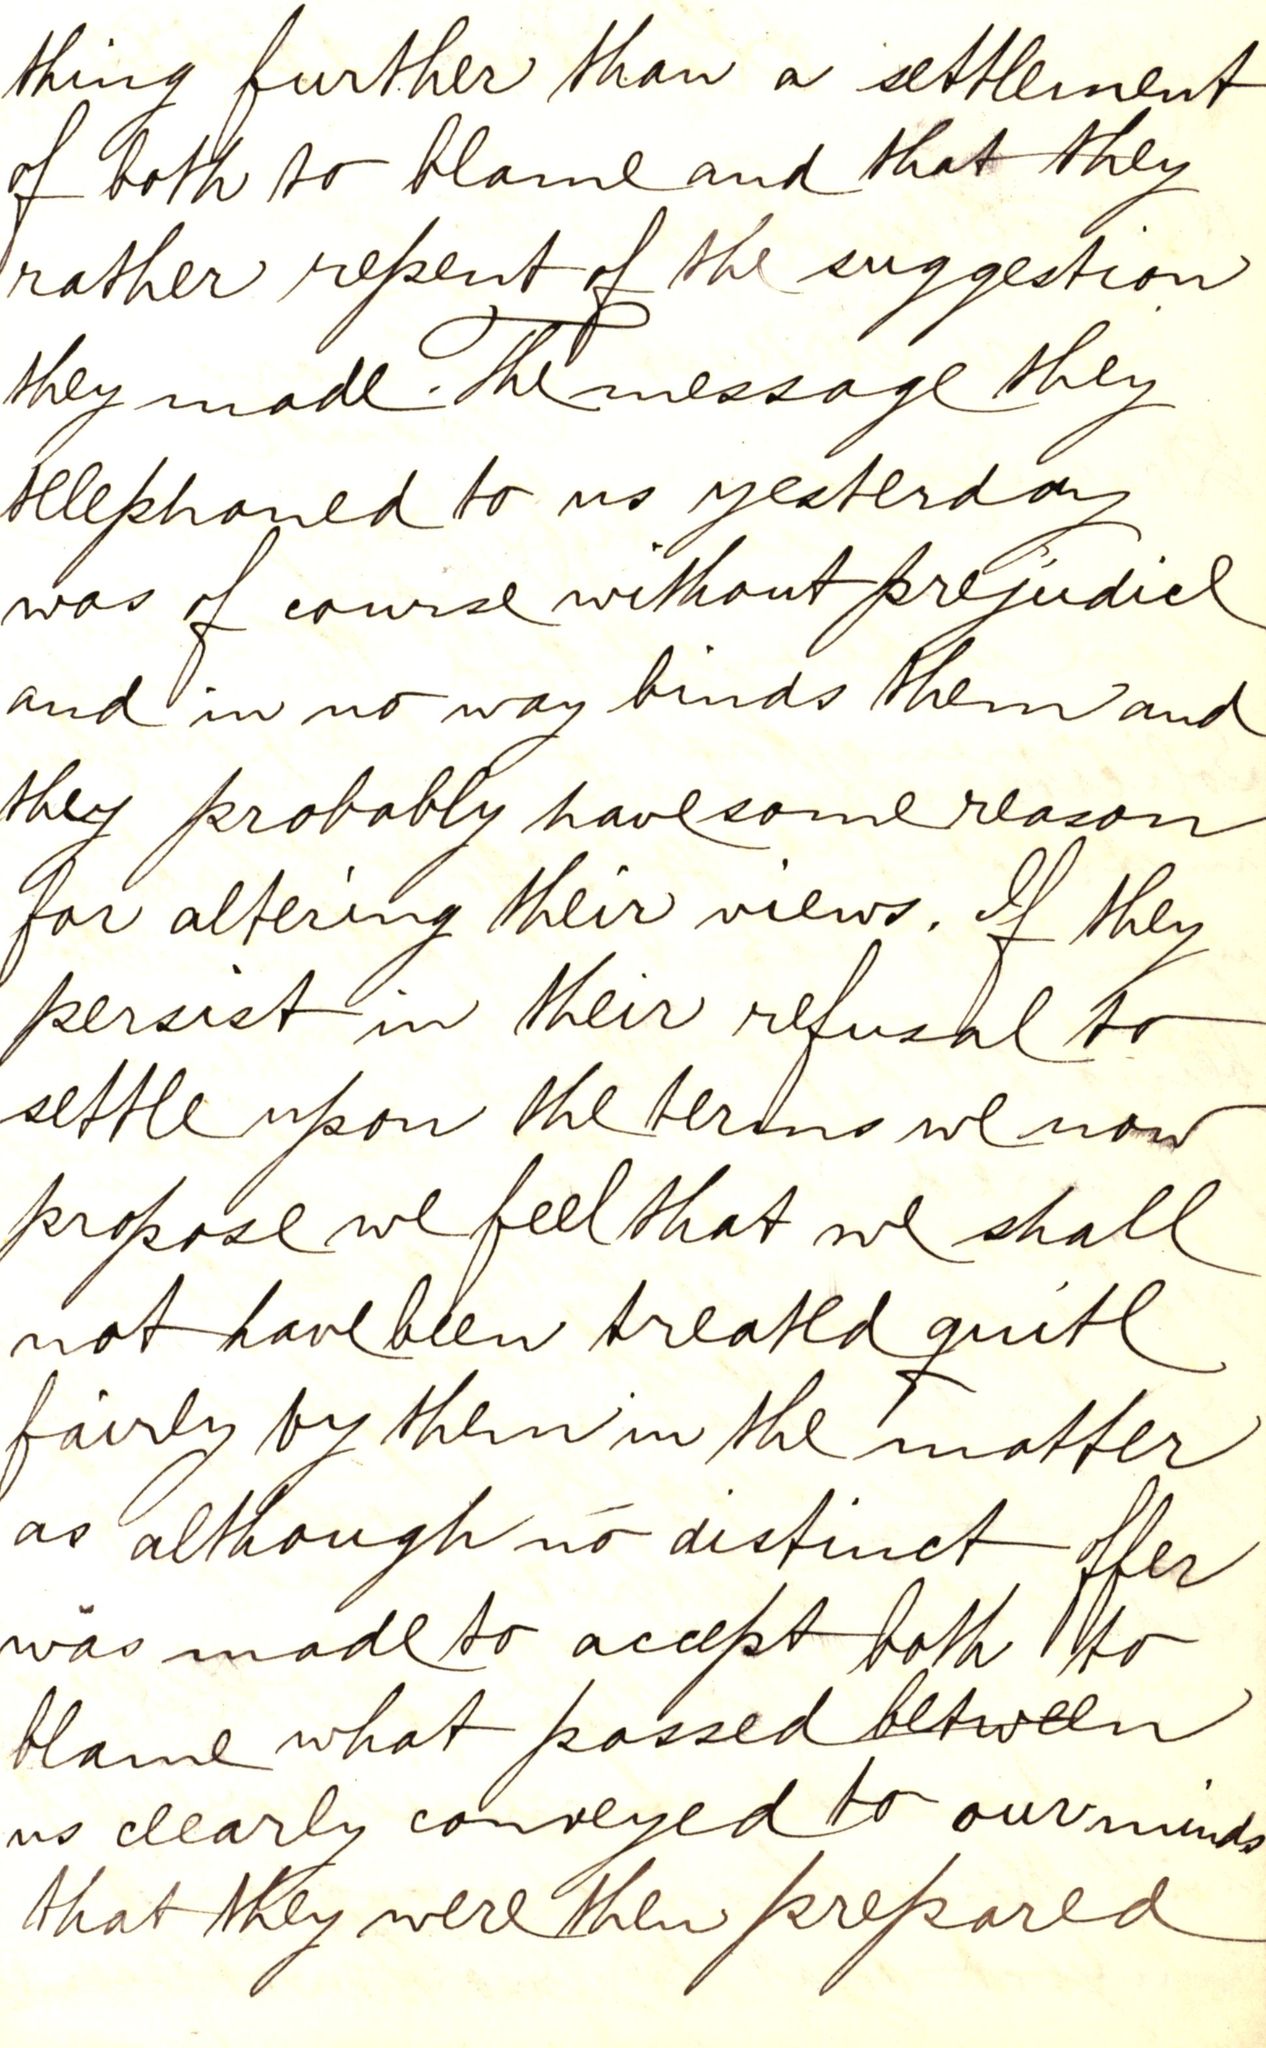 thing further than a settlement
of both to blame and that they
rather repent of the suggestion
they made. The message they
telephoned to us yesterday
was of course without prejudice
and in no way binds them and
they probably have some reason
for altering their views. If they
persist in their refusal to
settle upon the terms we now
propose we feel that we shall
not have been treated quite
fairly by them in the matter
as although no distinct offer
was made to accept both to
blame what passed between
us clearly conveyed to our minds
that they were then prepared